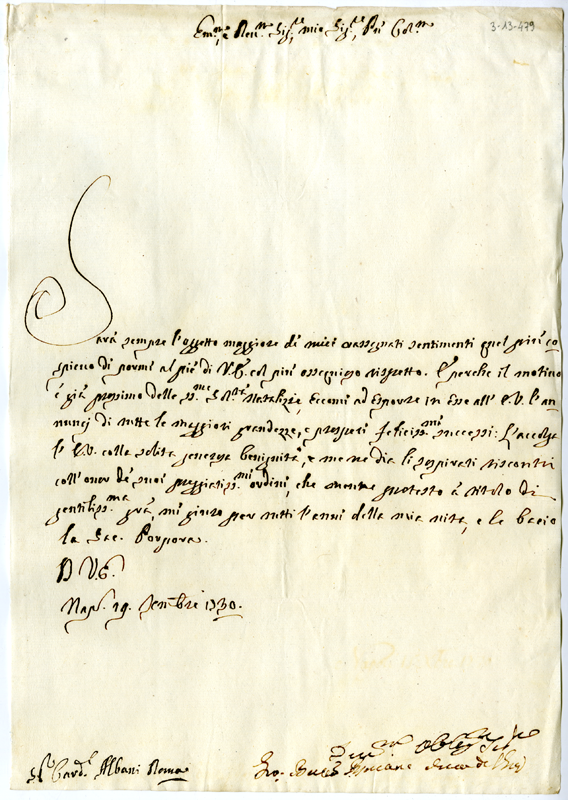 Em.mo e Rev.mo Sig.re mio Sig.re P.ne Col.mo
3-13-479
Sarà sempre l'oggetto maggiore di miei rassegnati sentimenti quel più co
spicuo di pormi al piè di V.E. col più ossequioso rispetto. E perche il motivo
è già prossimo delle SS.me Natalizie, eccomi ad esporre in esse all'E.V. l'an
nunci di tutte le maggiori grandezze, e prosperi feliciss.mi successi: L'accolga
l'E.V. colla solita generosa benignità, e me ne dia li sospirati riscontri
coll'onor de suoi preggiatiss.mi ordini, che mentre protesto à titolo di
gentiliss.ma gra, mi giuro per tutti l'anni della mia vita, e le bacio
la Sac. Porpora.
D V.E.
Nap. 19. Xembre 1730.
Sr Card.l Albani Roma